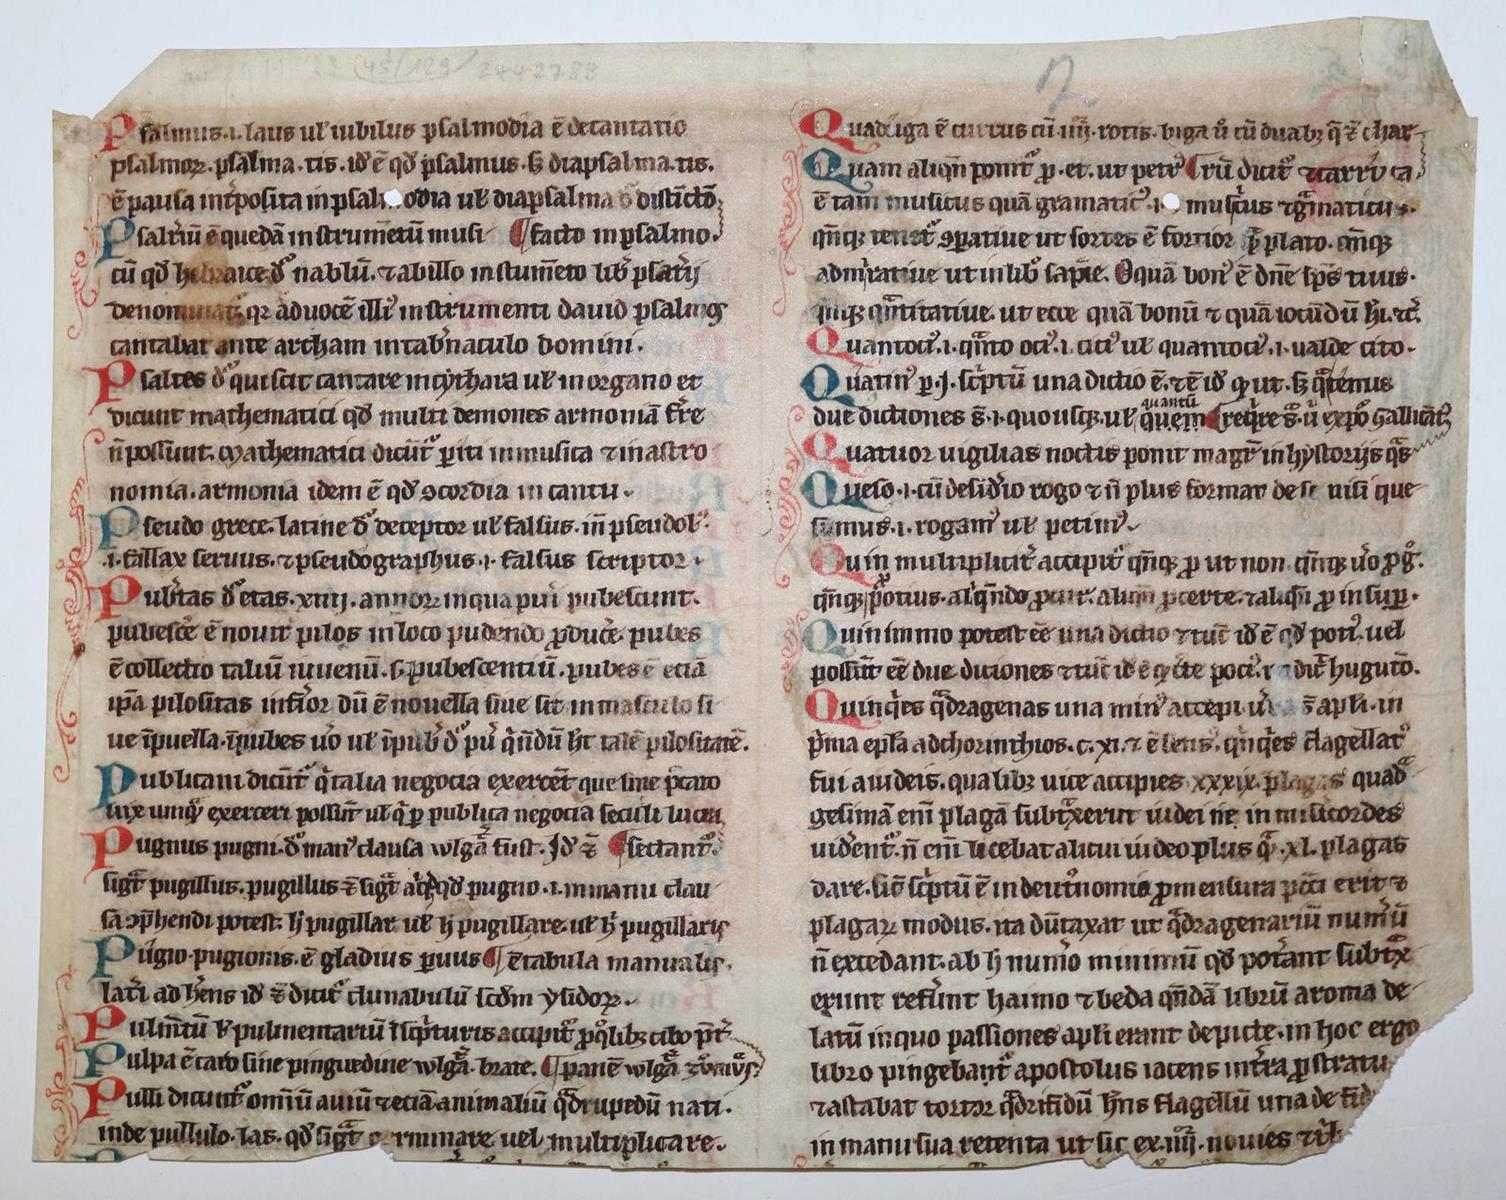 Psalmus .i. laus ul' iubilus psalmodia ē decantatio
psalmoꝝ. psalma .tis. id' ē qd' psalmus. s; diapsalma .tis.
ē pausa int'posita in psal odia ul' diapsalma distictō
Psalt'iū ē quedā instrum̄etū musi ¶ facto in psalmo.
cū qd' hebraice d'r nablū. ⁊ ab illo instum̄eto lib' psat'ij
denominat' qr ad uocē illi' instrumenti dauid psalmos
cantabat ante archam in tab'naculo domini.
Psaltes d'r qui scit cantare in cythara ul' in organo et
dicunt mathematici qd' multi demones armoniā fr̄re
n̄ possunt. Mathematici dicūt' p̱iti in musica ⁊ in astro
nomia. armonia idem ē qd' ꝯcordia in cantu.
Pseudo grece. latine d'r deceptor ul' falsus. in̄ pseudol'.
.i. fallax seruus. ⁊ pseudographus .i. falsus scriptor.
Pub'tas d'r etas .xiiij. annoꝝ in qua pu'i pubescunt.
pubesc'e ē nouit' pilos in loco pudendo ꝓduc'e. pubes
ē collectio taliū iuuenū. s. pubescentiū. pubes ē etiā
ip̄a pilositas inf'ior dū ē nouella siue sit in masculo si
ue ī puella. īpubes u'o ul' īpub' d'r pu' q'ndū h't talē pilositatē.
Publicani dicūt' q' talia negocia exercēt que sine p̄cato
uix umq' exerceri possūt ul' q' p̱ publica negocia seculi lucra
Pugnus pugni d'r man' clausa wlgā fust. Id' ⁊ ¶ sectant'.
sigt' pugillus. pugillus ⁊ sigt' qd' pugno .i. in manu clau
sa ꝯp̄hendi potest. h' pugillar ul' h' pugillare. ul' h' pugillaris
Pugio pugionis. ē gladius p̱uus ¶ ē tabula manualis.
lat'i adh'ens id' ⁊ dicit' clunabulū scd'm ysidoꝝ.
Pulm̄tū ul' pulmentariū ī sc'pturis accipit' ꝓ q'lib; cibo p̄t'
Pulpa ē caro sine pinguedine wlgā. brate. ¶ panē wlgā
Pulli dicunt' omīū auiū ⁊ eciā animaliū q'drupedū nati.
inde pullulo .las. qd' sigt' germinare uel multiplicare.
Quadriga ē currus cū .iiij. rotis. biga u' cū duab; q̄ ⁊ char
Quam aliqn̄ ponit' ꝓ .et. ut petr' ¶ rū dicit' ⁊ carruca
ē tam musicus quā gramatic' .i. musicus ⁊ g'maticus.
qn̄q; tenet' ꝯp̱atiue ut sortes ē fortior p̄ plato. qn̄q;
admiratiue ut in lib'o sapie. O quā bon' ē dn̄e sp̄s tuus.
qn̄q; q'ntitatiue. ut ecce quā bonū ⁊ quā iocūdū h̄i. ⁊c'.
Quantoci' .i. q'nto oci' .i. citi' ul' quantoci' .i. ualde cito.
Quatin' p̱ .i. sc'ptū una dictio ē. ⁊ ē id' qd' ut. s; q'tenus
due dictiones s̄. .i. quousq; ul' quem quantū ¶ req're s̄. u' expō gallicāt'
Quatuor uigilias noctis ponit magr̄ in hystorijs q's
Queso .i. cū desid'io rogo ⁊ n̄ plus formar de se nisi que
sumus .i. rogam' ul' petim'.
Quin multiplicit' accipit' qn̄q; ꝓ ut non qn̄q; u'o ꝓ
qn̄q; ꝓ potius. al'q'ndo ꝓ cur. aliqn̄ ꝓ certe. ⁊ aliqn̄ ꝓ insup̱.
Quinimmo potest eē una dictio ⁊ tūc id' ē qd' poti'. uel
possūt eē due dictiones ⁊ tūc id' ē q' c'te poci'. dicit huguto.
Quinq'es q'dragenas una min' accepi s̄. apl'i. in
p'ma epl'a ad chorinthios .c. xi. ⁊ ē sens'. q'nq'es flagellat'
fui a iudeis. qualib; uice accipies .xxxix. plagas quad'
gesimā eni plagā subt'xerut iudei ne inmisericordes
uid'ent'. n̄ eni licebat alicui iudeo plus q'. .xl. plagas
dare. sic̄ sc'ptū ē in deut'nomio ꝓ mensura pcc̄i erit ⁊
plagaꝝ modus. ita dūtaxat ut q'dragenariū num'ū
n̄ excedant. ab h' num'o minimū qd' pot'ant subt'x
erunt ref'unt haimo ⁊ beda qn̄dā librū aroma de
latū in quo passiones apl'i erant depicte. in hoc ergo
libro pingebant' apostolus iacens int'ra ꝓstratu
⁊ astabat tortor q'drifidū h'ns flagellū una de fid
in manu sua retenta ut sic ex .iiij. nouies ⁊